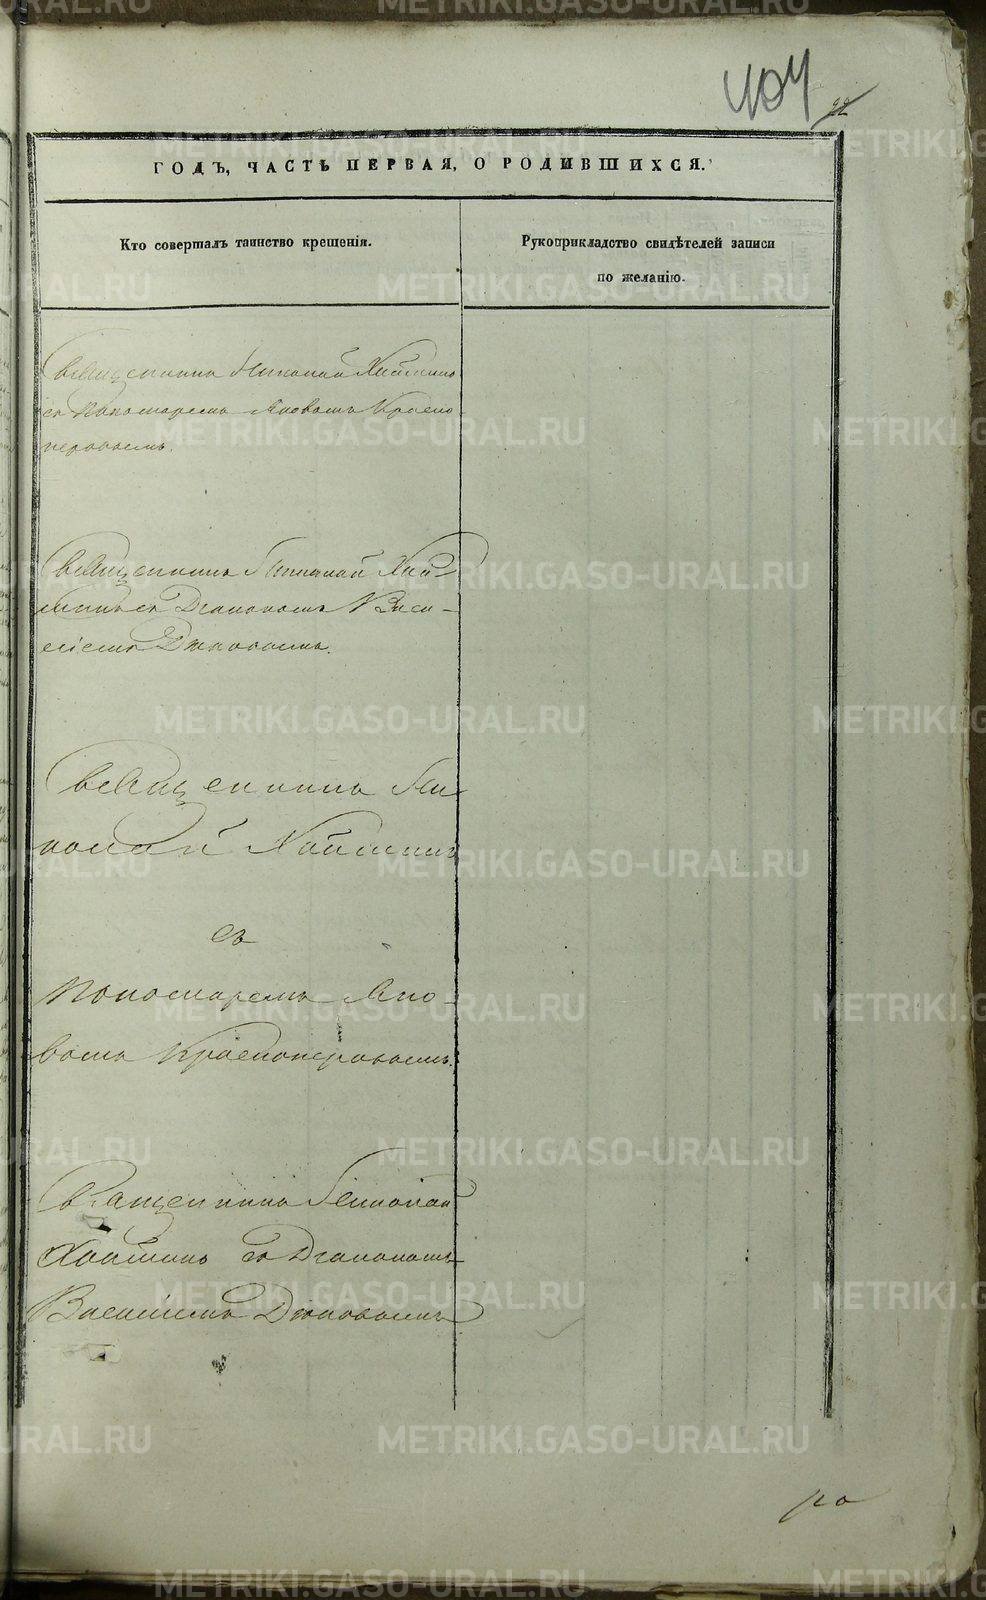 404
92
ГОДЪ, ЧАСТЬ ПЕРВАЯ, О РОДИВШИХСЯ.
Кто совершалъ таинство крещенія.
Рукоприкладство свидѣтелей записи
по желанію.
Священникъ Николай Хитминъ
съ Пономаремъ Яковомъ Красно
перовымъ.
Священникъ Николай
съ Діакономъ Васи-
ліемъ Дьяковымъ.
Священникъ Ни-
колай
съ
Пономаремъ Яко-
вомъ Красноперовымъ.
Священникъ Николай
съ Діакономъ
Василіемъ Дьяковымъ
METRIKI.GASO-URAL.RU